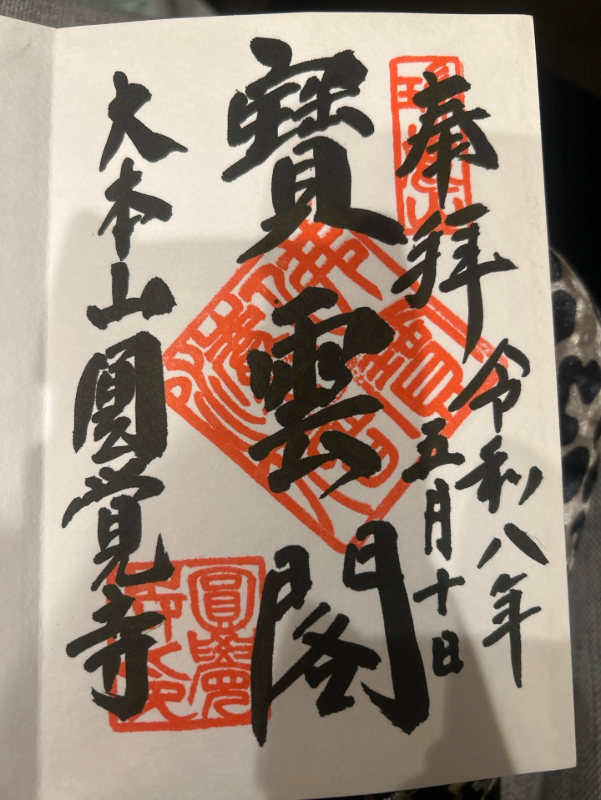 奉拝
令和八年
五月十日
寶雲閣
大本山圓覚寺